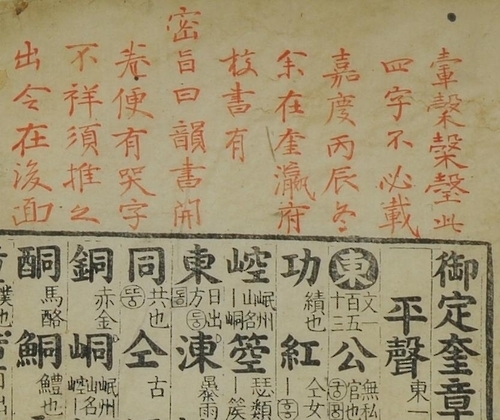 此
四字不必載
嘉慶丙辰冬
余在奎瀛府
校書有
密旨曰韻書開
卷便有哭字
不祥須推之
出令在後面
御定奎章
平聲 東一
東 文一百五十三 公 無私 官也
功 績也 紅 仝女
崆 岷州山名 ｜峒 箜 瑟類 ｜篌
東 日出方 동 涷 暴雨
同 共也 仝 古
銅 赤金 峒 岷州山名 崆｜
酮 馬酪 鮦 鱧也